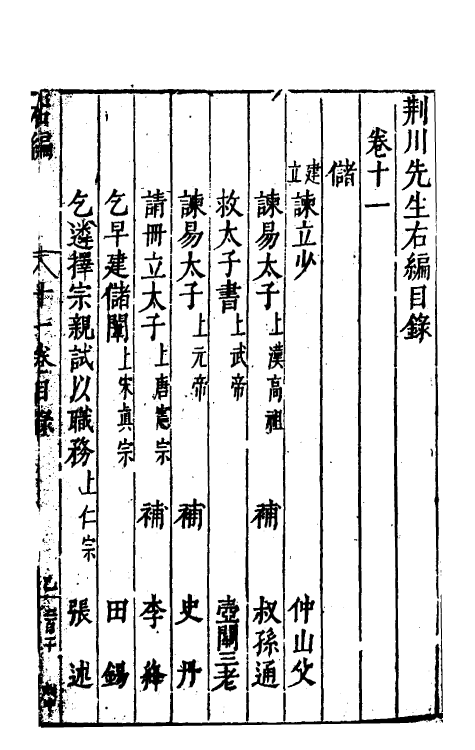 荆川先生右編目錄
卷十一
儲
建立 諫立少 仲山父
諫易太子 上漢高祖 補 叔孫通
救太子書 上武帝 壺關三老
諫易太子 上元帝 補 史丹
請冊立太子 上唐憲宗 補 李絳
乞早建儲闈 上宋真宗 田錫
乞遴擇宗親試以職務 上仁宗 張述
右編 十一卷目錄